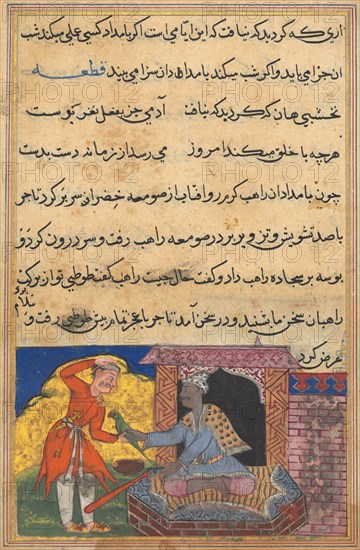 اری که کرد بد که نیافت که این ایامی است اگر بامداد کسی عملی میکند شب
ان جزا می یابد و اگر شب میکند بامدادان سزا می بیند قطعه
نخشبی هان که کرد بد که نیافت آدمی جز بفعل نغز کیوست
هرچه با خلق میکند امروز می رسد از زمانه دست بدست
چون بامدادان راهب کرم رو افتاب از صومعه خضرا سر بر کرد تاجر
با صد تشویش و در صومعه راهب رفت و سر درون کرد و
بوسه بر سجاده راهب داد و گفت حال چیت راهب گفت طوطی تو از برکت
راهبان سخن و در سخن آمد تاجر با عجز تمام پیش طوطی رفت و
عرض کرد